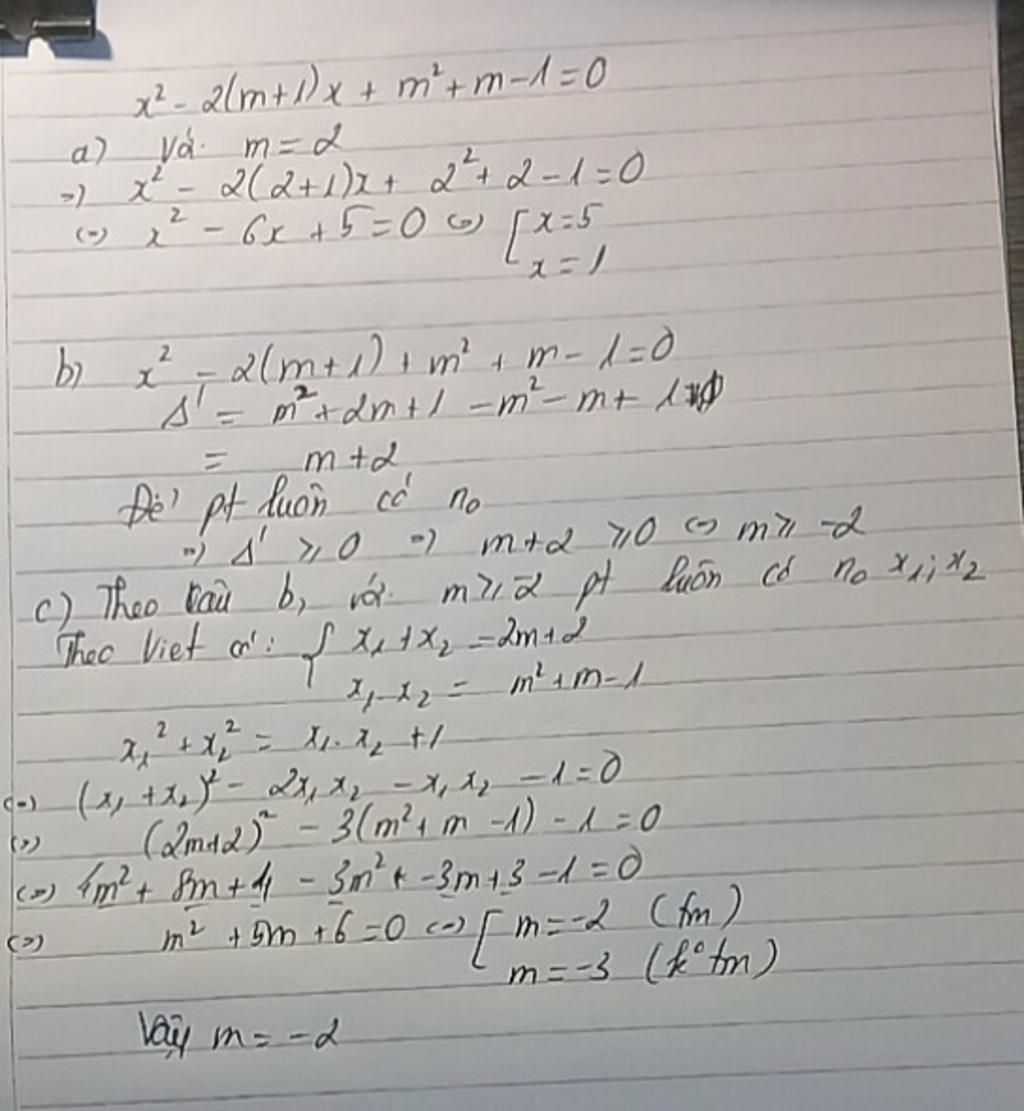 x² - 2(m+1)x + m² + m - 1 = 0
a) Với m = 2
=) x² - 2(2+1)x + 2² + 2 - 1 = 0
(=) x² - 6x + 5 = 0 (=) [ x = 5
x = 1
b) x² - 2(m+1) + m² + m - 1 = 0
Δ' = m² + 2m + 1 - m² - m + 1
= m + 2
Để pt luôn có no
=) Δ' ⩾ 0 =) m + 2 ⩾ 0 (=) m ⩾ -2
c) Theo câu b, với m ⩾ -2 pt luôn có no x₁; x₂
Theo Viet có: { x₁ + x₂ = 2m + 2
x₁ . x₂ = m² + m - 1
x₁² + x₂² = x₁ . x₂ + 1
(=) (x₁ + x₂)² - 2x₁x₂ - x₁x₂ - 1 = 0
(=) (2m+2)² - 3(m² + m - 1) - 1 = 0
(=) 4m² + 8m + 4 - 3m² - 3m + 3 - 1 = 0
(=) m² + 5m + 6 = 0 (=) [ m = -2 (tm)
m = -3 (k° tm)
Vậy m = -2